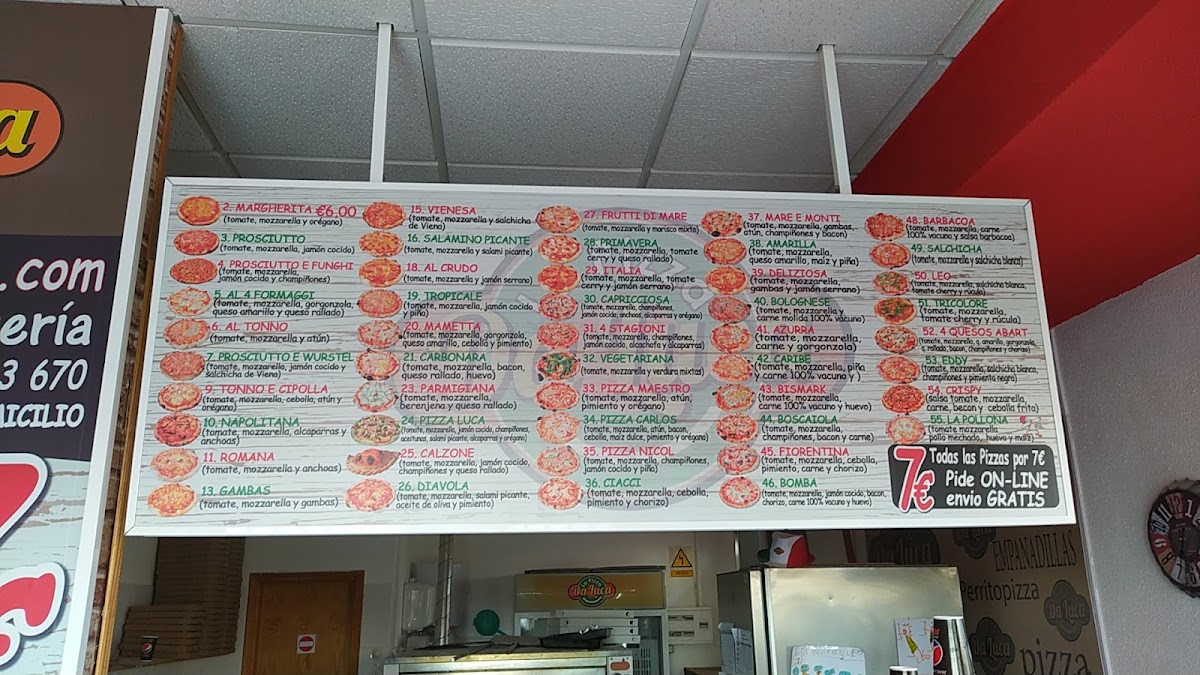 a
.com
ería
3 670
MICILIO
2. MARGHERITA €6.00
(tomate, mozzarella y orégano)
3. PROSCIUTTO
(tomate, mozzarella, jamón cocido)
4. PROSCIUTTO E FUNGHI
(tomate, mozzarella,
jamón cocido y champiñones)
5. AL 4 FORMAGGI
(tomate, mozzarella, gorgonzola,
queso amarillo y queso rallado)
6. AL TONNO
(tomate, mozzarella y atún)
7. PROSCIUTTO E WURSTEL
(tomate, mozzarella, jamón cocido y
salchicha de Viena)
9. TONNO E CIPOLLA
(tomate, mozzarella, cebolla, atún y
orégano)
10. NAPOLITANA
(tomate, mozzarella, alcaparras y
anchoas)
11. ROMANA
(tomate, mozzarella y anchoas)
13. GAMBAS
(tomate, mozzarella y gambas)
15. VIENESA
(tomate, mozzarella y salchicha
de Viena)
16. SALAMINO PICANTE
(tomate, mozzarella y salami picante)
18. AL CRUDO
(tomate, mozzarella y jamón serrano)
19. TROPICALE
(tomate, mozzarella, jamón cocido
y piña)
20. MAMETTA
(tomate, mozzarella, gorgonzola,
queso amarillo, cebolla y pimiento)
21. CARBONARA
(tomate, mozzarella, bacon,
queso rallado, huevo)
23. PARMIGIANA
(tomate, mozzarella,
berenjena y queso rallado)
24. PIZZA LUCA
(tomate, mozzarella, jamón cocido, champiñones,
aceitunas, salami picante, alcaparras y orégano)
25. CALZONE
(tomate, mozzarella, jamón cocido,
champiñones y queso rallado)
26. DIAVOLA
(tomate, mozzarella, salami picante,
aceite de oliva y pimiento)
27. FRUTTI DI MARE
(tomate, mozzarella y marisco mixto)
28. PRIMAVERA
(tomate, mozzarella, tomate
cerry y queso rallado)
29. ITALIA
(tomate, mozzarella, tomate
cerry y jamón serrano)
30. CAPRICCIOSA
(tomate, mozzarella, champiñones,
jamón cocido, anchoas, alcaparras y orégano)
31. 4 STAGIONI
(tomate, mozzarella, champiñones,
jamón cocido, alcachofa y alcaparras)
32. VEGETARIANA
(tomate, mozzarella y verdura mixtas)
33. PIZZA MAESTRO
(tomate, mozzarella, atún,
pimiento y orégano)
34. PIZZA CARLOS
(tomate, mozzarella, atún, bacon,
cebolla, maíz dulce, pimiento y orégano)
35. PIZZA NICOL
(tomate, mozzarella, champiñones,
jamón cocido y piña)
36. CIACCI
(tomate, mozzarella, cebolla,
pimiento y chorizo)
37. MARE E MONTI
(tomate, mozzarella, gambas,
atún, champiñones y bacon)
38. AMARILLA
(tomate, mozzarella,
queso amarillo, maíz y piña)
39. DELIZIOSA
(tomate, mozzarella,
gambas y jamón serrano)
40. BOLOGNESE
(tomate, mozzarella y
carne molida 100% vacuno)
41. AZURRA
(tomate, mozzarella,
carne y gorgonzola)
42. CARIBE
(tomate, mozzarella, piña
y carne 100% vacuno )
43. BISMARK
(tomate, mozzarella,
carne 100% vacuno y huevo)
44. BOSCAIOLA
(tomate, mozzarella,
champiñones, bacon y carne)
45. FIORENTINA
(tomate, mozzarella, cebolla,
pimiento, carne y chorizo)
46. BOMBA
(tomate, mozzarella, jamón cocido, bacon,
chorizo, carne 100% vacuno y huevo)
48. BARBACOA
(tomate, mozzarella, carne
100% vacuno y salsa barbacoa)
49. SALCHICHA
(tomate, mozzarella y salchicha blanca)
50. LEO
(tomate, mozzarella, salchicha blanca,
tomate cherry y rucula)
51. TRICOLORE
(tomate, mozzarella,
tomate cherry y rúcula)
52. 4 QUESOS ABART
(tomate, mozzarella, q. amarillo, gorgonzola,
q. rallado, bacon, champiñones y chorizo)
53. EDDY
(tomate, mozzarella, salchicha blanca,
champiñones y pimienta negra)
54. CRISPY
(salsa tomate, mozzarella,
carne, becon y cebolla frita)
55. LA POLLONA
(tomate, mozzarella,
pollo mechado, huevo y maíz)
7€
Todas las Pizzas por 7€
Pide ON-LINE
envio GRATIS
Da Luca
Da Luca
EMPANADILLAS
Perritopizza
Da Luca
Da Luca
pizza